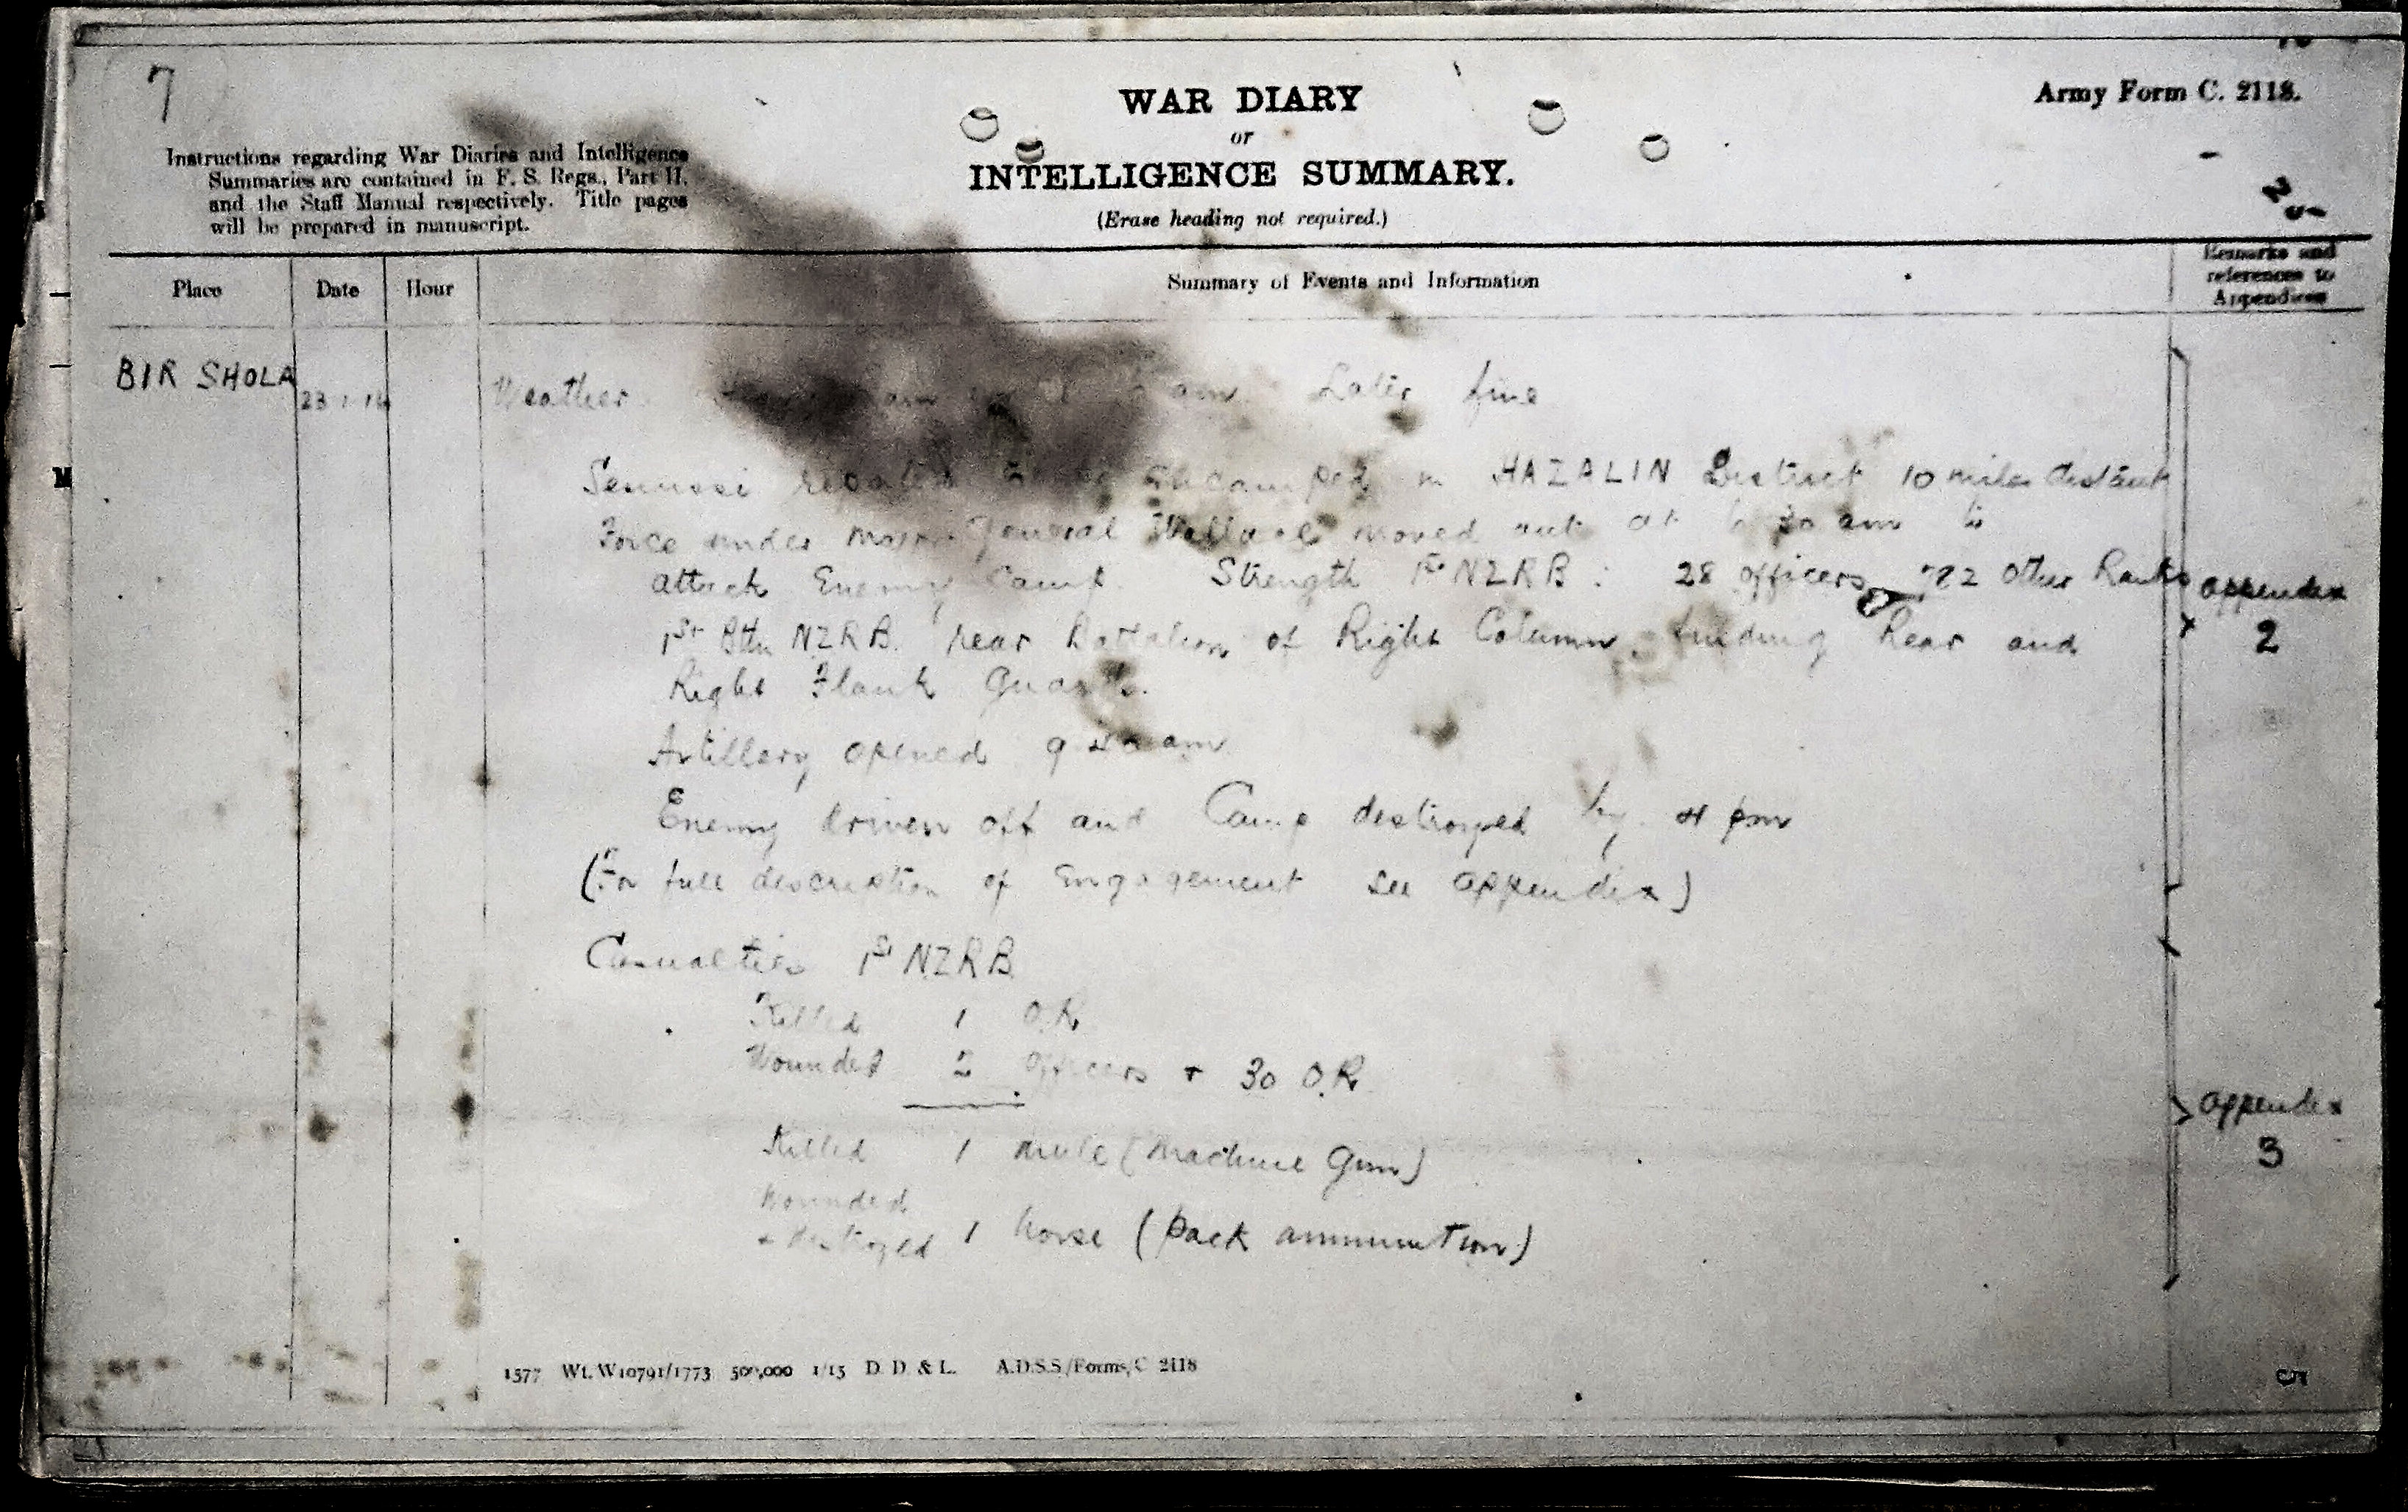 7
WAR DIARY
or
INTELLIGENCE SUMMARY.
(Erase heading not required.)
Army Form C. 2118.
Instructions regarding War Diaries and Intelligence
Summaries are contained in F. S. Regs., Part II.
and the Staff Manual respectively. Title pages
will be prepared in manuscript.
Place Date Hour Summary of Events and Information
Remarks and
references to
Appendices
BIR SHOLA
Weather am Later fine
Senussi encamped in HAZALIN District 10 miles distant
Force under Major General Wallace moved out at am to
attack Enemy Camp. Strength 1st NZRB : 28 officers 782 Other Ranks
1st Bttn NZRB. rear Battalion of Right Column, finding Rear and
Right Flank Guards.
Appendix
2
Artillery opened 9 am
Enemy driven off and Camp destroyed by 4 pm
(For full description of Engagement see appendix)
Casualties 1st NZRB
Killed 1 O.R
Wounded 2 Officers + 30 O.R.
Killed 1 mule (Machine Gun)
Wounded
+ destroyed 1 horse (pack ammunition)
Appendix
3
1577 Wt. W10791/1773 500,000 1/15 D. D. & L. A.D.S.S./Forms/C 2118